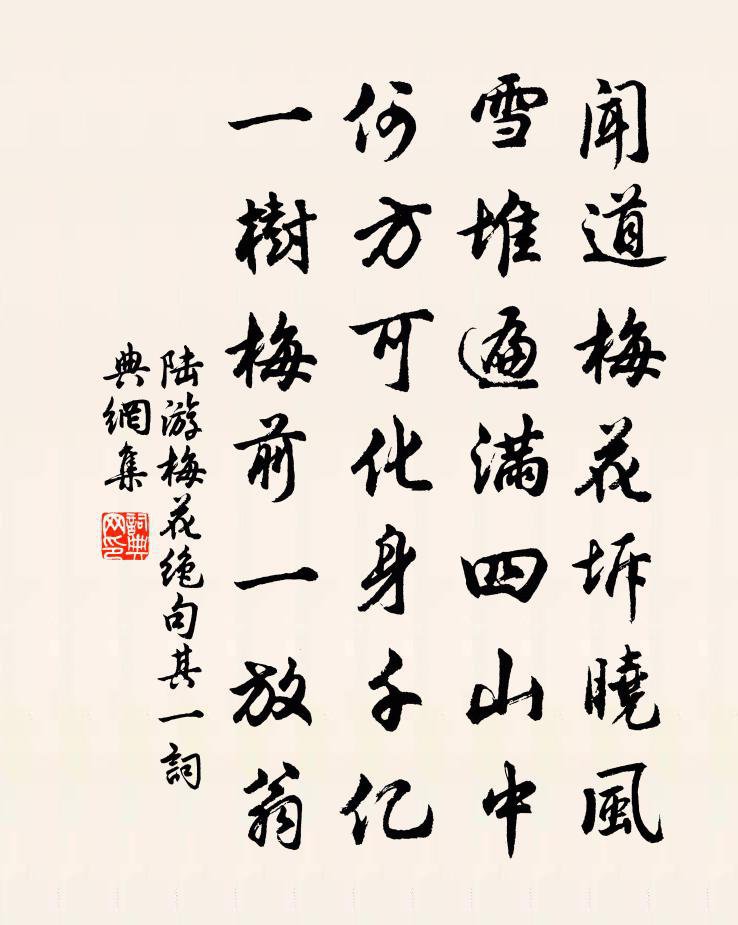 聞道梅花坼曉風
雪堆遍滿四山中
何方可化身千亿
一樹梅前一放翁
陆游梅花绝句其一詞
典網集
詞典
网印